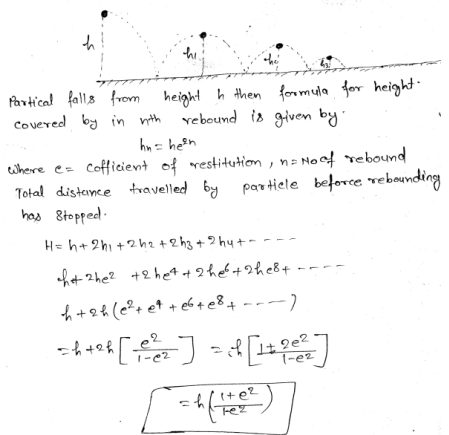 h h1 h2 h3
Partical falls from height h then formula for height
covered by in nth rebound is given by
hn = he²ⁿ
where e = cofficient of restitution, n = No of rebound
Total distance travelled by particle beforce rebounding
has stopped.
H = h + 2h1 + 2h2 + 2h3 + 2h4 + - - - -
h + 2he² + 2he⁴ + 2he⁶ + 2he⁸ + - - - -
h + 2h (e² + e⁴ + e⁶ + e⁸ + - - - -)
= h + 2h [ e² / 1-e² ] = h [ 1 + 2e² / 1-e² ]
= h ( 1+e² / 1-e² )